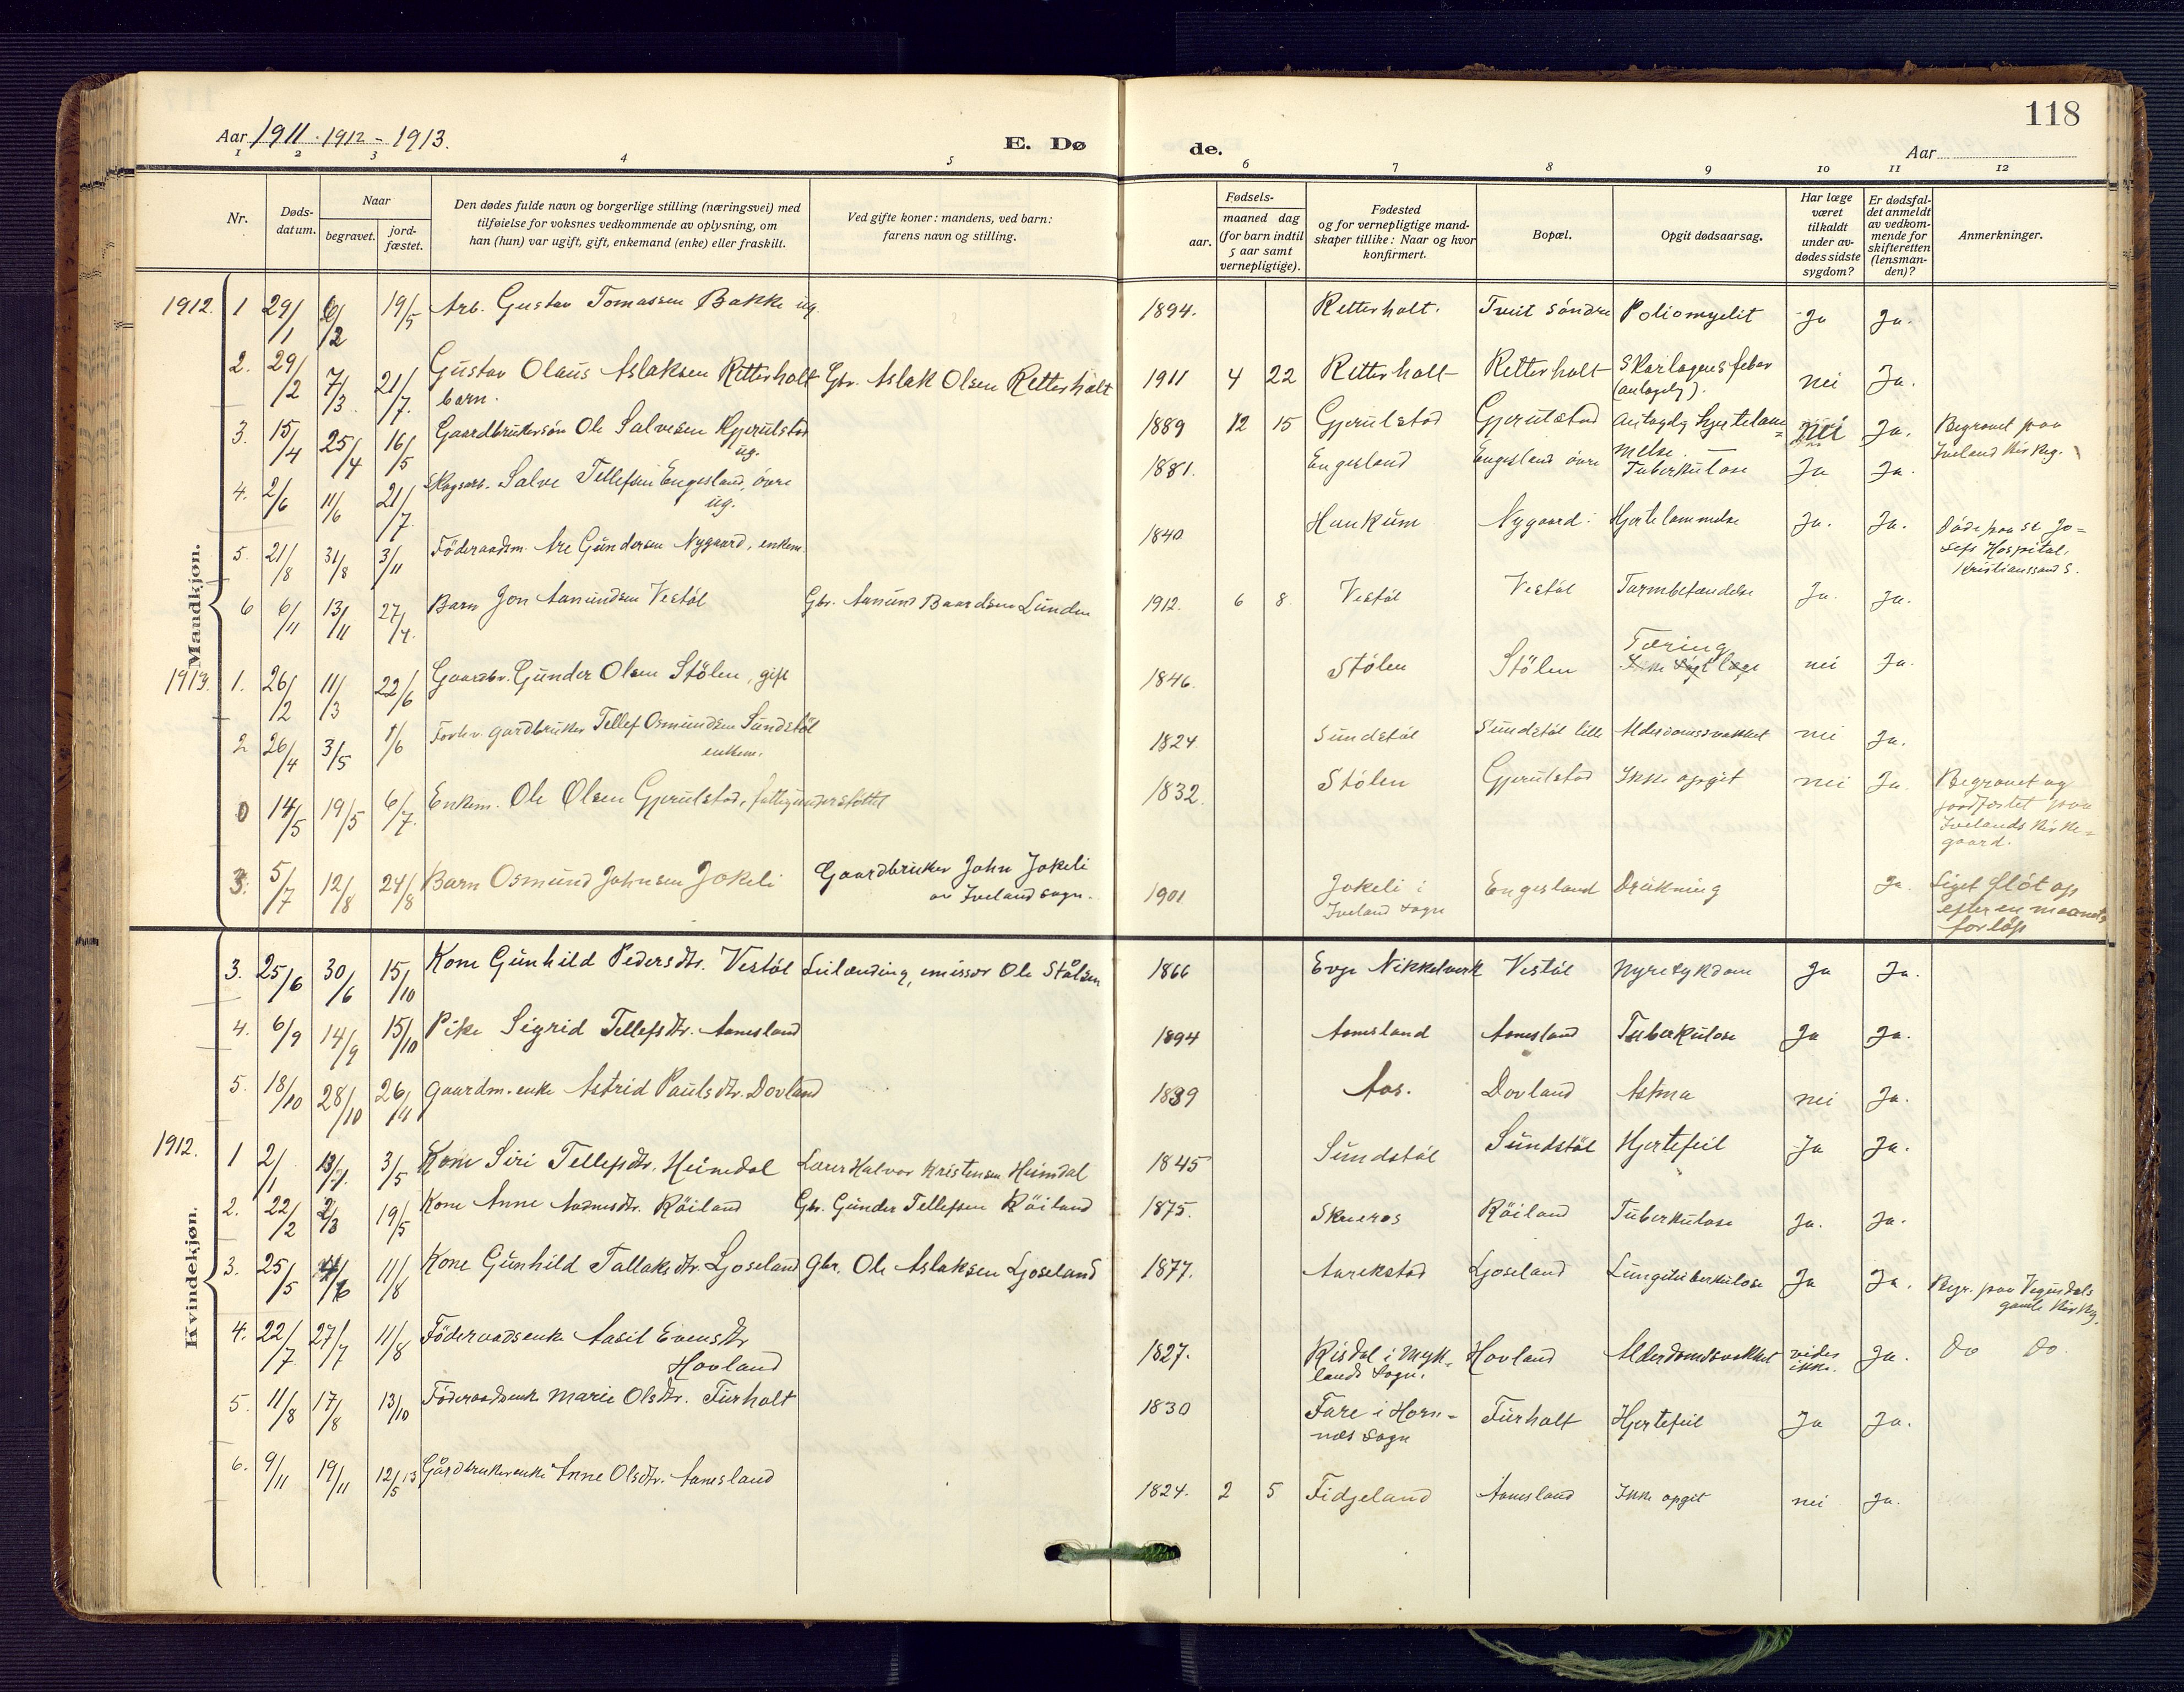 118
Aar 1911 . 1912 - 1913.
E. Dø
de.
Aar
1 2 3 4 5
6 7 8 9 10 11 12
Nr.
Døds-
datum.
Naar
begravet.
jord-
fæstet.
Den dødes fulde navn og borgerlige stilling (næringsvei) med
tilføielse for voksnes vedkommende av oplysning, om
han (hun) var ugift, gift, enkemand (enke) eller fraskilt.
Ved gifte koner: mandens, ved barn:
farens navn og stilling.
Fødsels-
aar.
maaned dag
(for barn indtil
5 aar samt
vernepligtige).
Fødested
og for vernepligtige mand-
skaper tillike: Naar og hvor
konfirmert.
Bopæl.
Opgit dødsaarsag.
Har læge
været
tilkaldt
under av-
dødes sidste
sygdom?
Er dødsfal-
det anmeldt
av vedkom-
mende for
skifteretten
(lensman-
den)?
Anmerkninger.
Mandkjøn.
1912. 1 29/1 6/2 19/5 Arb. Gustav Tomassen Bakke ug. 1894. Retterholt. Tveit söndre Poliomyelit Ja Ja.
2. 29/2 7/3 21/7. Gustav Olaus Aslaksen Retterholt Gbr. Aslak Olsen Retterholt 1911 4 22 Retterholt Retterholt Skarlagensfeber nei Ja.
barn. (antagelig).
3. 15/4 25/4 16/5 Gaardbrukersön Ole Salvesen Gjerulstad 1889 12 15 Gjerulstad Gjerulstad antagelig hjertelam= nei Ja. Begravet paa
ug. melse. Iveland kirkeg.
4. 2/6 11/6 21/7. Skogsarb. Salve Tellefsen Engesland, övre 1881. Engesland Engesland övre Tuberkulose Ja Ja.
ug.
5. 21/8 31/8 3/11 Föderaadsm. Are Gundersen Nygaard, enkem. 1840 Haukum Nygaard. Hjertelammelse Ja. Ja. Döde paa St. Jo=
sefs Hospital,
Kristianssand S.
6 6/11 13/11 27/4. Barn Jon Aanundsen Vestöl Gbr. Aanund Baardsen Lunden 1912. 6 8. Vestöl Vestöl Tarmbetændelse Ja. Ja.
1913. 1. 26/2 11/3 22/6 Gaardbr. Gunder Olsen Stölen, gift 1846. Stölen Stölen Tæring nei Ja.
Ikke søgt læge
2 26/4 3/5 1/6 Forhv. gardbruker Tellef Osmundsen Sundstöl 1824 Sundstöl Sundstöl lille Alderdomssvakket nei Ja.
enkem.
0 14/5 19/5 6/7. Enkem. Ole Olsen Gjerulstad, fattigunderstöttet 1832. Stölen Gjerulstad Ikke opgit nei Ja. Begravet og
jordfæstet paa
Ivelands kirke=
gaard.
3. 5/7 12/8 24/8 Barn Osmund Johnsen Jokeli Gaardbruker John Jokeli 1901 Jokeli i Engesland Drukning Ja. Liget flöt op
av Iveland sogn. Iveland sogn efter en maaneds
forlöp
Kvindekjøn.
3. 25/6 30/6 15/10 Kone Gunhild Pedersdtr. Vestöl Leilænding, emissær Ole Stålsen 1866 Evje Nikkelverk Vestöl Nyresykdom Ja Ja.
4. 6/9 14/9 15/10 Pike Sigrid Tellefsdtr. Aamesland 1894 Aamesland Aamesland Tuberkulose Ja Ja.
5. 18/10 28/10 26/11 Gaardm. enke Astrid Paulsdtr. Dovland 1839 Aas. Dovland Astma nei Ja.
1912. 1 2/1 13/1. 3/5 Kone Siri Tellefsdtr. Heimdal Lærer Halvor Kristensen Heimdal 1845 Sundstöl Sundstöl Hjertefeil Ja Ja.
2. 22/2 2/3 19/5 Kone Anne Aadnesdtr. Röiland Gbr. Gunder Tellefsen Röiland 1875. Skreros Röiland Tuberkulose Ja. Ja.
3. 25/5 4/6 11/8 Kone Gunhild Tallaksdtr. Ljoseland Gbr. Ole Aslaksen Ljoseland 1877. Aarekstad Ljoseland Lungetuberkulose Ja Ja. Begr. paa Vegusdals
gamle kirkeg.
4. 22/7 27/7 11/8 Föderaadsenke Aasil Evensdtr 1827. Risdal i Myk= Hovland Alderdomssvakket vides Ja. Do Do.
Hovland lands sogn. ikke.
5. 11/8 17/8 13/10 Föderaadsenke Marie Olsdtr. Furholt 1830 Fare i Horn= Furholt Hjertefeil Ja Ja.
nes sogn
6. 9/11 19/11 12/5 13 Gårdbrukerenke Anne Olsdtr. Aamesland 1824. 2 5 Fidjeland Aamesland Ikke opgit nei Ja.